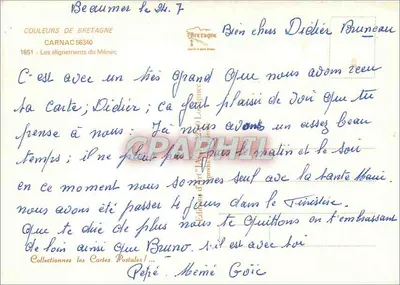 Beaumer le 24.7
COULEURS DE BRETAGNE
CARNAC 56340
1651 - Les alignements du Ménec
Bretagne
Bien chers Didier Bruneau
C'est avec un très grand que nous avons reçu
ta carte; Didier; ça fait plaisir de voir que tu
pense à nous. Ja nous avons un assez beau
temps; il ne pleut pas le matin et le soir
en ce moment nous sommes seul avec la tante Marie
nous avons été passer 4 jours dans le Finistère
que te dire de plus nous te quittons en t'embrassant
de loin ainsi que Bruno s'il est avec toi
Collectionnez les Cartes Postales !...
Pépé. Mémé Göic
CPAPHIL